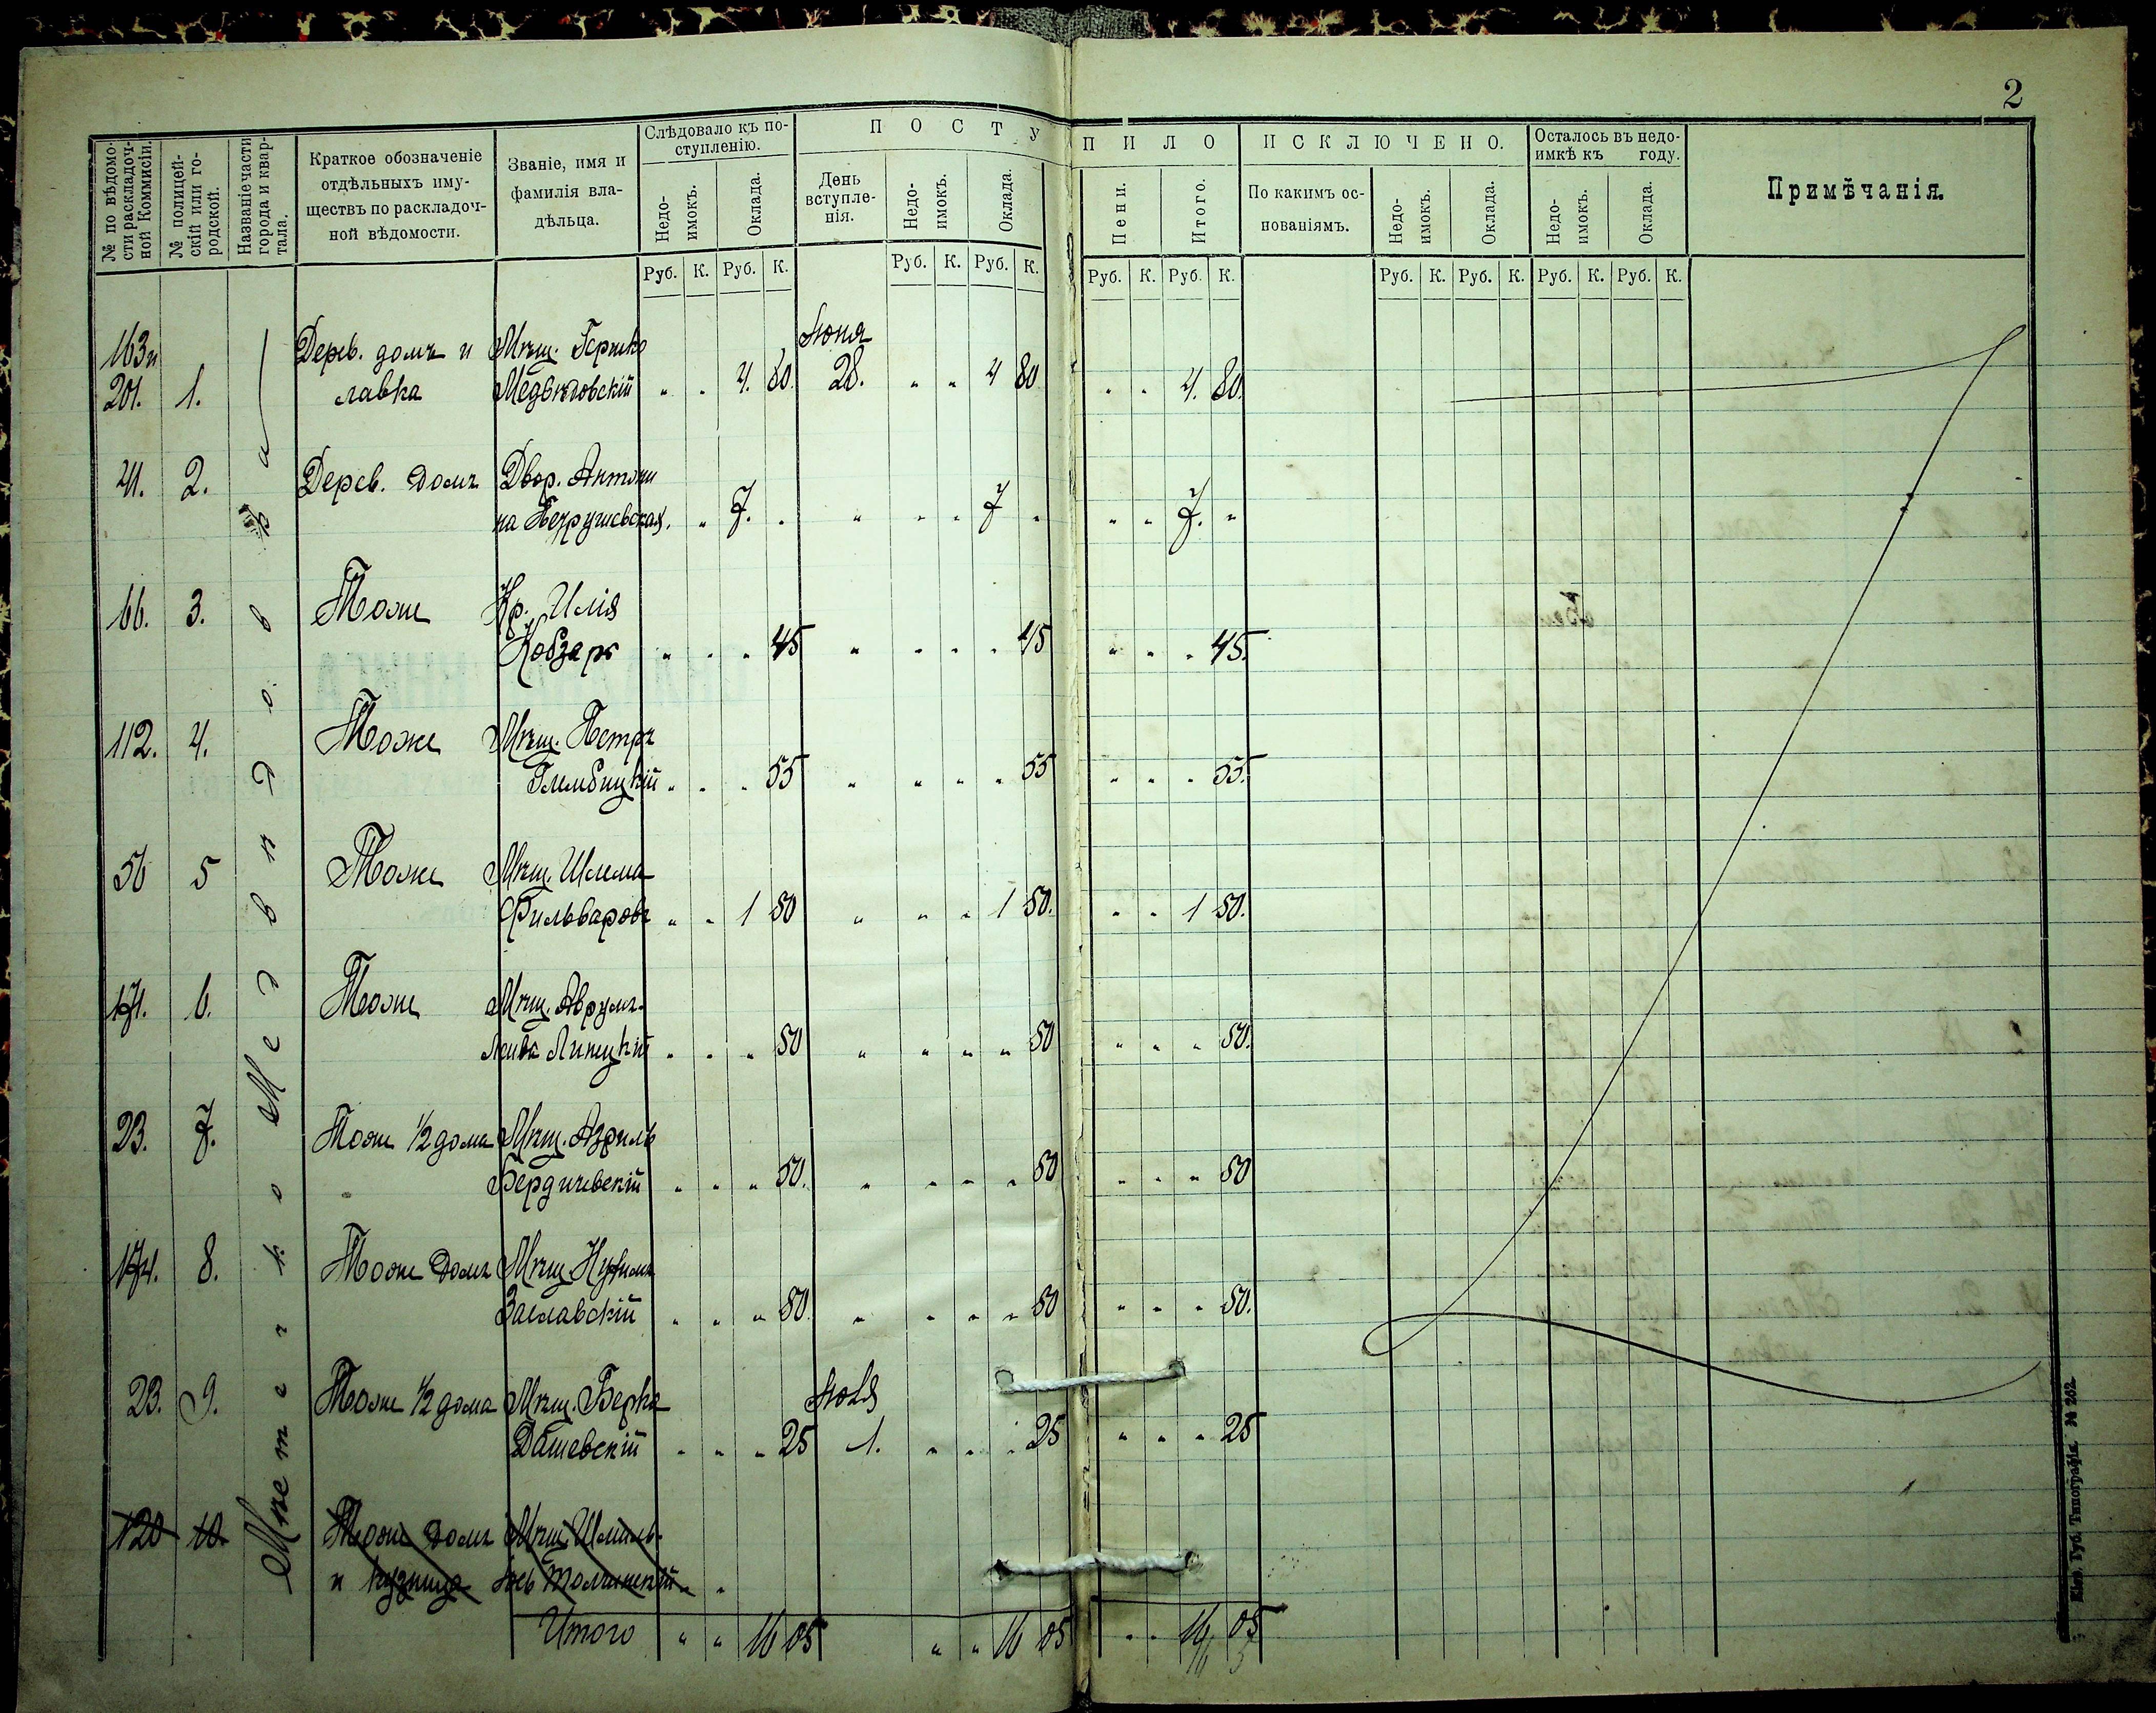 2
№ по вѣдомости раскладочной Коммисіи.
№ полицейскій или городской.
Названіе части города и квартала.
Краткое обозначеніе отдѣльныхъ имуществъ по раскладочной вѣдомости.
Званіе, имя и фамилія владѣльца.
Слѣдовало къ поступленію.
Недоимокъ. Оклада.
П О С Т У П И Л О
День вступленія. Недоимокъ. Оклада. Пени. Итого.
И С К Л Ю Ч Е Н О.
По какимъ основаніямъ. Недоимокъ. Оклада.
Осталось въ недоимкѣ къ году.
Недоимокъ. Оклада.
Примѣчанія.
Руб. К. Руб. К. Руб. К. Руб. К. Руб. К. Руб. К. Руб. К. Руб. К. Руб. К. Руб. К.
Мѣстечко Медвѣдовка
163 и Дерев. домъ и Мѣщ. Гершко Іюня
201. 1. лавка Медвѣдовскій " " 4. 80. 28. " " 4 80 " " 4. 80.
41. 2. Дерев. домъ Двор. Антони
на " 7. " " " " 7 " " " 7. "
66. 3. Тоже Кр. Илія
Кобзарь " " " 45 " " " " 45 " " " 45.
112. 4. Тоже Мѣщ. Петръ
Глембицкій " " " 55 " " " " 55 " " " 55.
56 5 Тоже Мѣщ. Шлема
Фильваровъ " " 1 50 " " " 1 50. " " 1 50.
171. 6. Тоже Мѣщ. Аврумъ-
Лейба Липецкій " " " 50 " " " " 50 " " " 50.
23. 7. Тоже 1/2 дома Мѣщ. Азриль
Бердичевскій " " " 50. " " " " 50 " " " 50
174. 8. Тоже домъ Мѣщ. Нухимъ
Заславскій " " " 50. " " " " 50 " " " 50.
23. 9. Тоже 1/2 дома Мѣщ. Берко Іюля
Дашевскій " " " 25 1. " " " 25 " " " 25
120 10 Тоже домъ Мѣщ. Шмиль-
и кузница Іось Толчинскій " "
Итого " " 16 05 " " 16 05 " " 16 05
Кіев. Губ. Типографія. № 262